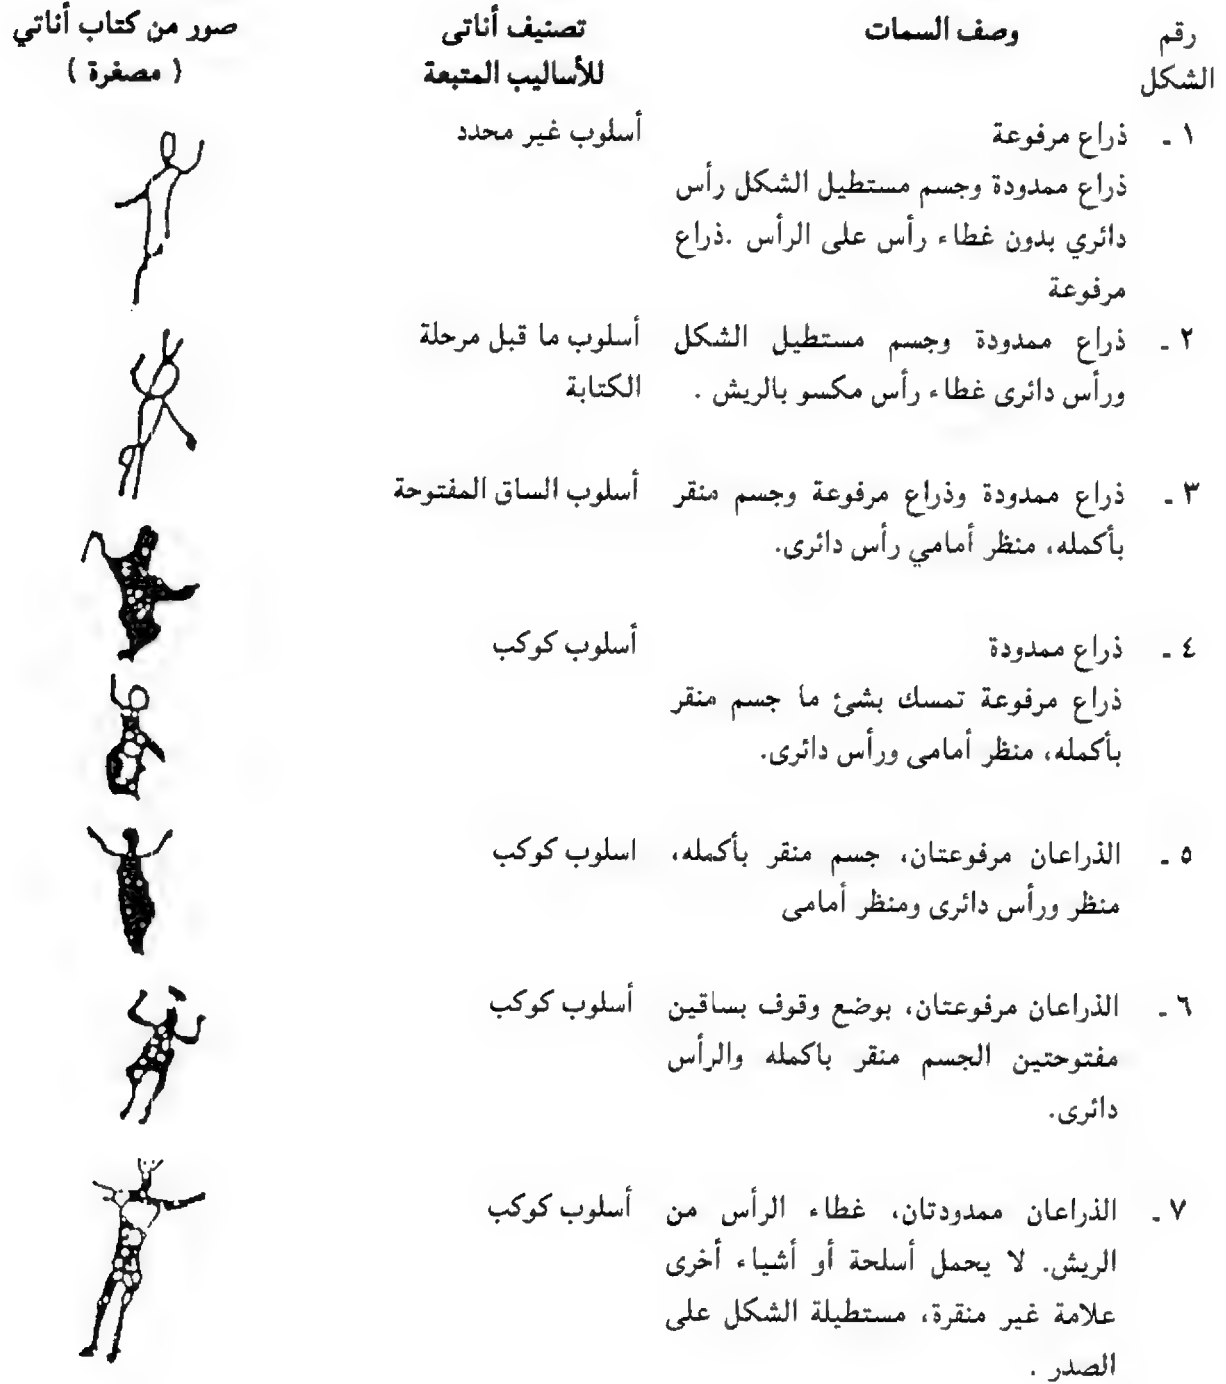 رقم
الشكل
وصف السمات
تصنيف أناتى
للأساليب المتبعة
صور من كتاب أناتي
( مصغرة )
١ ـ
ذراع مرفوعة
ذراع ممدودة وجسم مستطيل الشكل رأس
دائري بدون غطاء رأس على الرأس .ذراع
مرفوعة
أسلوب غير محدد
٢ ـ
ذراع ممدودة وجسم مستطيل الشكل
ورأس دائرى غطاء رأس مكسو بالريش .
أسلوب ما قبل مرحلة
الكتابة
٣ ـ
ذراع ممدودة وذراع مرفوعة وجسم منقر
بأكمله، منظر أمامي رأس دائرى.
أسلوب الساق المفتوحة
٤ ـ
ذراع ممدودة
ذراع مرفوعة تمسك بشئ ما جسم منقر
بأكمله، منظر أمامى ورأس دائرى.
أسلوب كوكب
٥ ـ
الذراعان مرفوعتان، جسم منقر بأكمله،
منظر ورأس دائرى ومنظر أمامى
اسلوب كوكب
٦ ـ
الذراعان مرفوعتان، بوضع وقوف بساقين
مفتوحتين الجسم منقر باكمله والرأس
دائرى.
أسلوب كوكب
٧ ـ
الذراعان ممدودتان، غطاء الرأس من
الريش. لا يحمل أسلحة أو أشياء أخرى
علامة غير منقرة، مستطيلة الشكل على
الصدر .
أسلوب كوكب